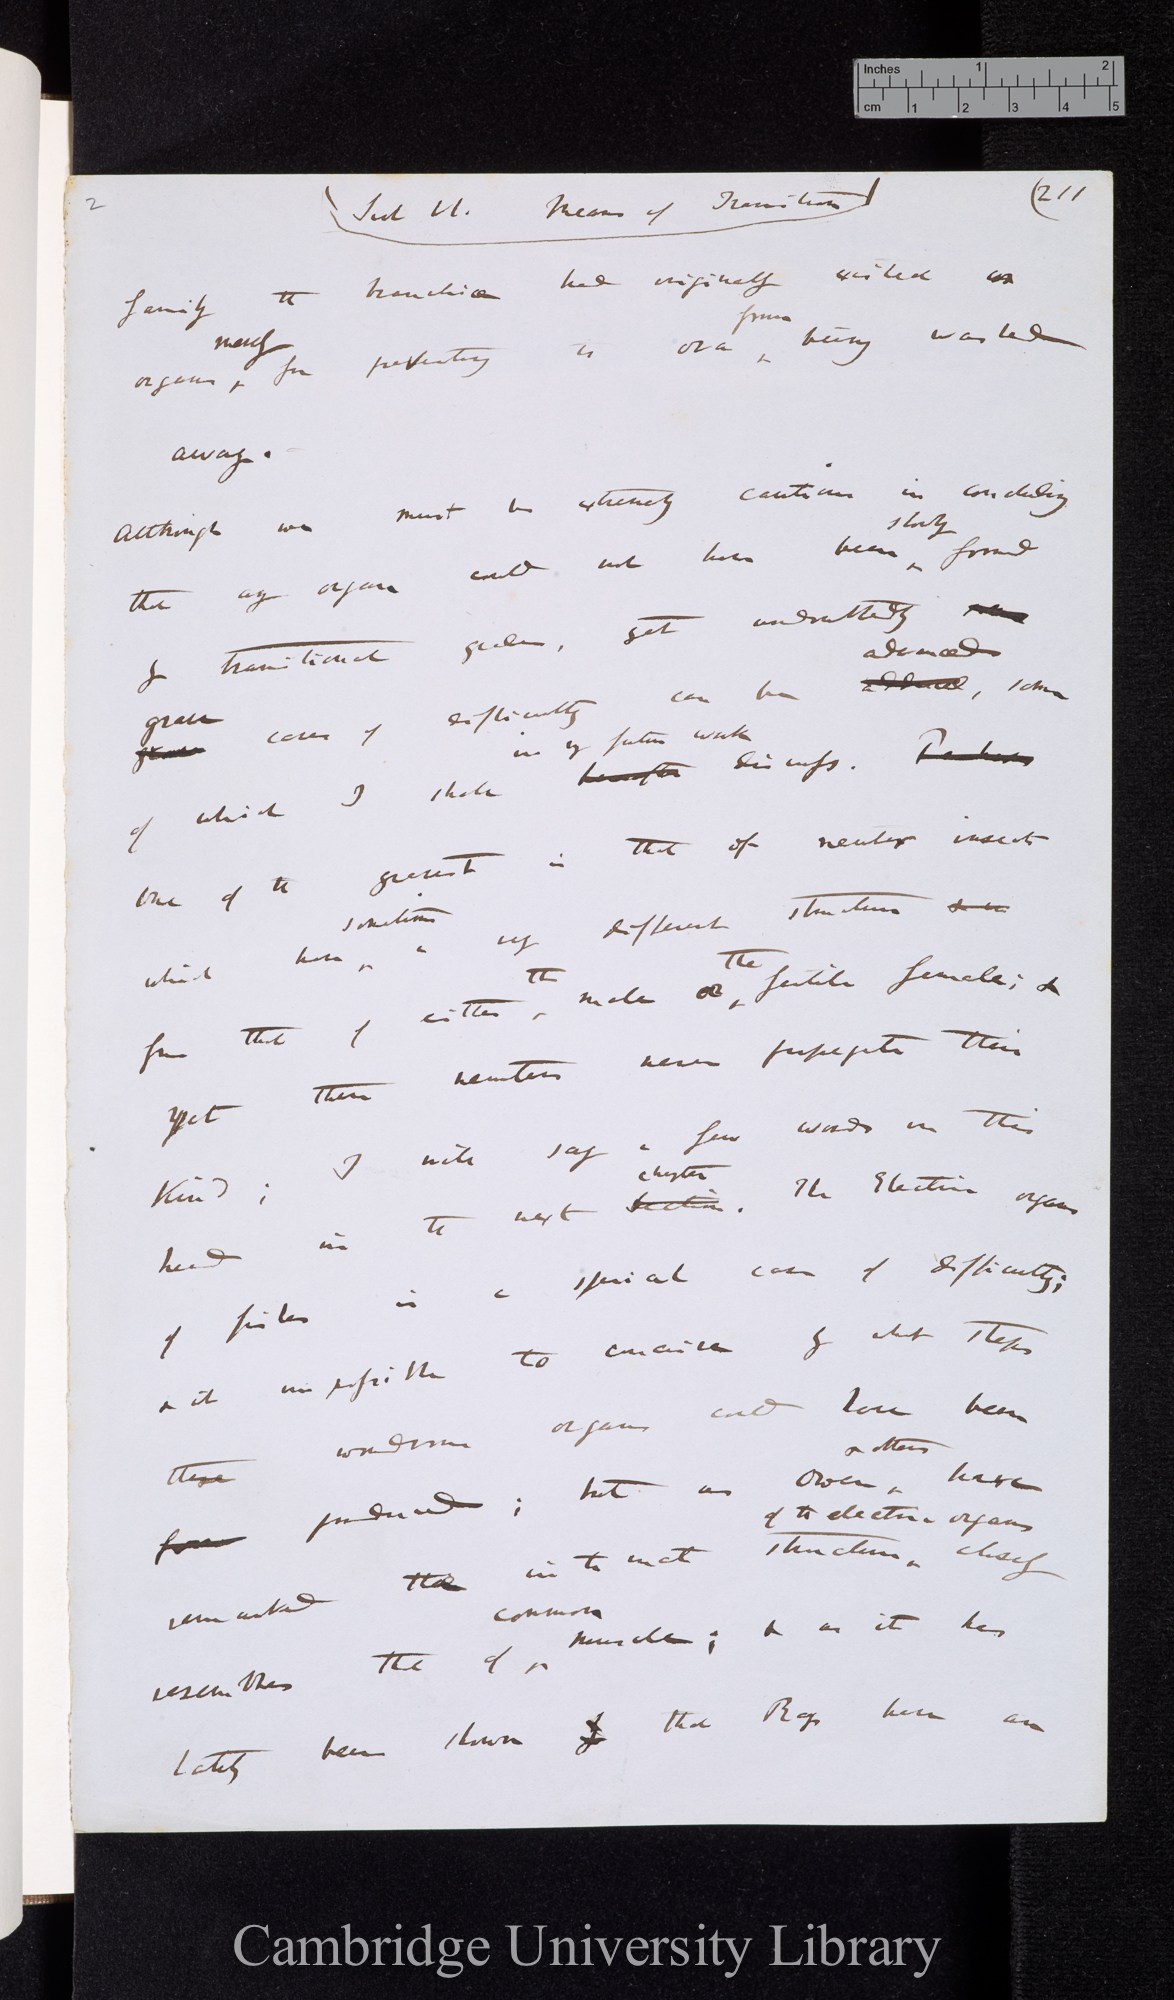 Inches 1 2
cm 1 2 3 4 5
2
Means of Transition
(211
family the branchiæ had originally existed as
from
merely
organs, for preventing the ova being washed
away.
Although we must be extremely cautious in concluding
slowly
that any organ could not have been formed
by transitional grades, yet undoubtedly
advanced
grave
cases of difficulty can be adduced, some
in my future work
of which I shall hereafter discuss. Perhaps
One of the gravest is that of neuter insects
sometimes
which have a very different structure
the
the
from that of either male or fertile female; &
yet these neuters never propagate their
Kind; I will say a few words on this
chapter
head in the next section. The Electric organs
of fishes is a special case of difficulty;
it impossible to conceive by what steps
these wondrous organs could have been
& others
form produced; but as Owen have
of the electric organs
remarked the intimate structure closely
common
resembles that of muscle; & as it has
lately been shown that Rays have an
Cambridge University Library